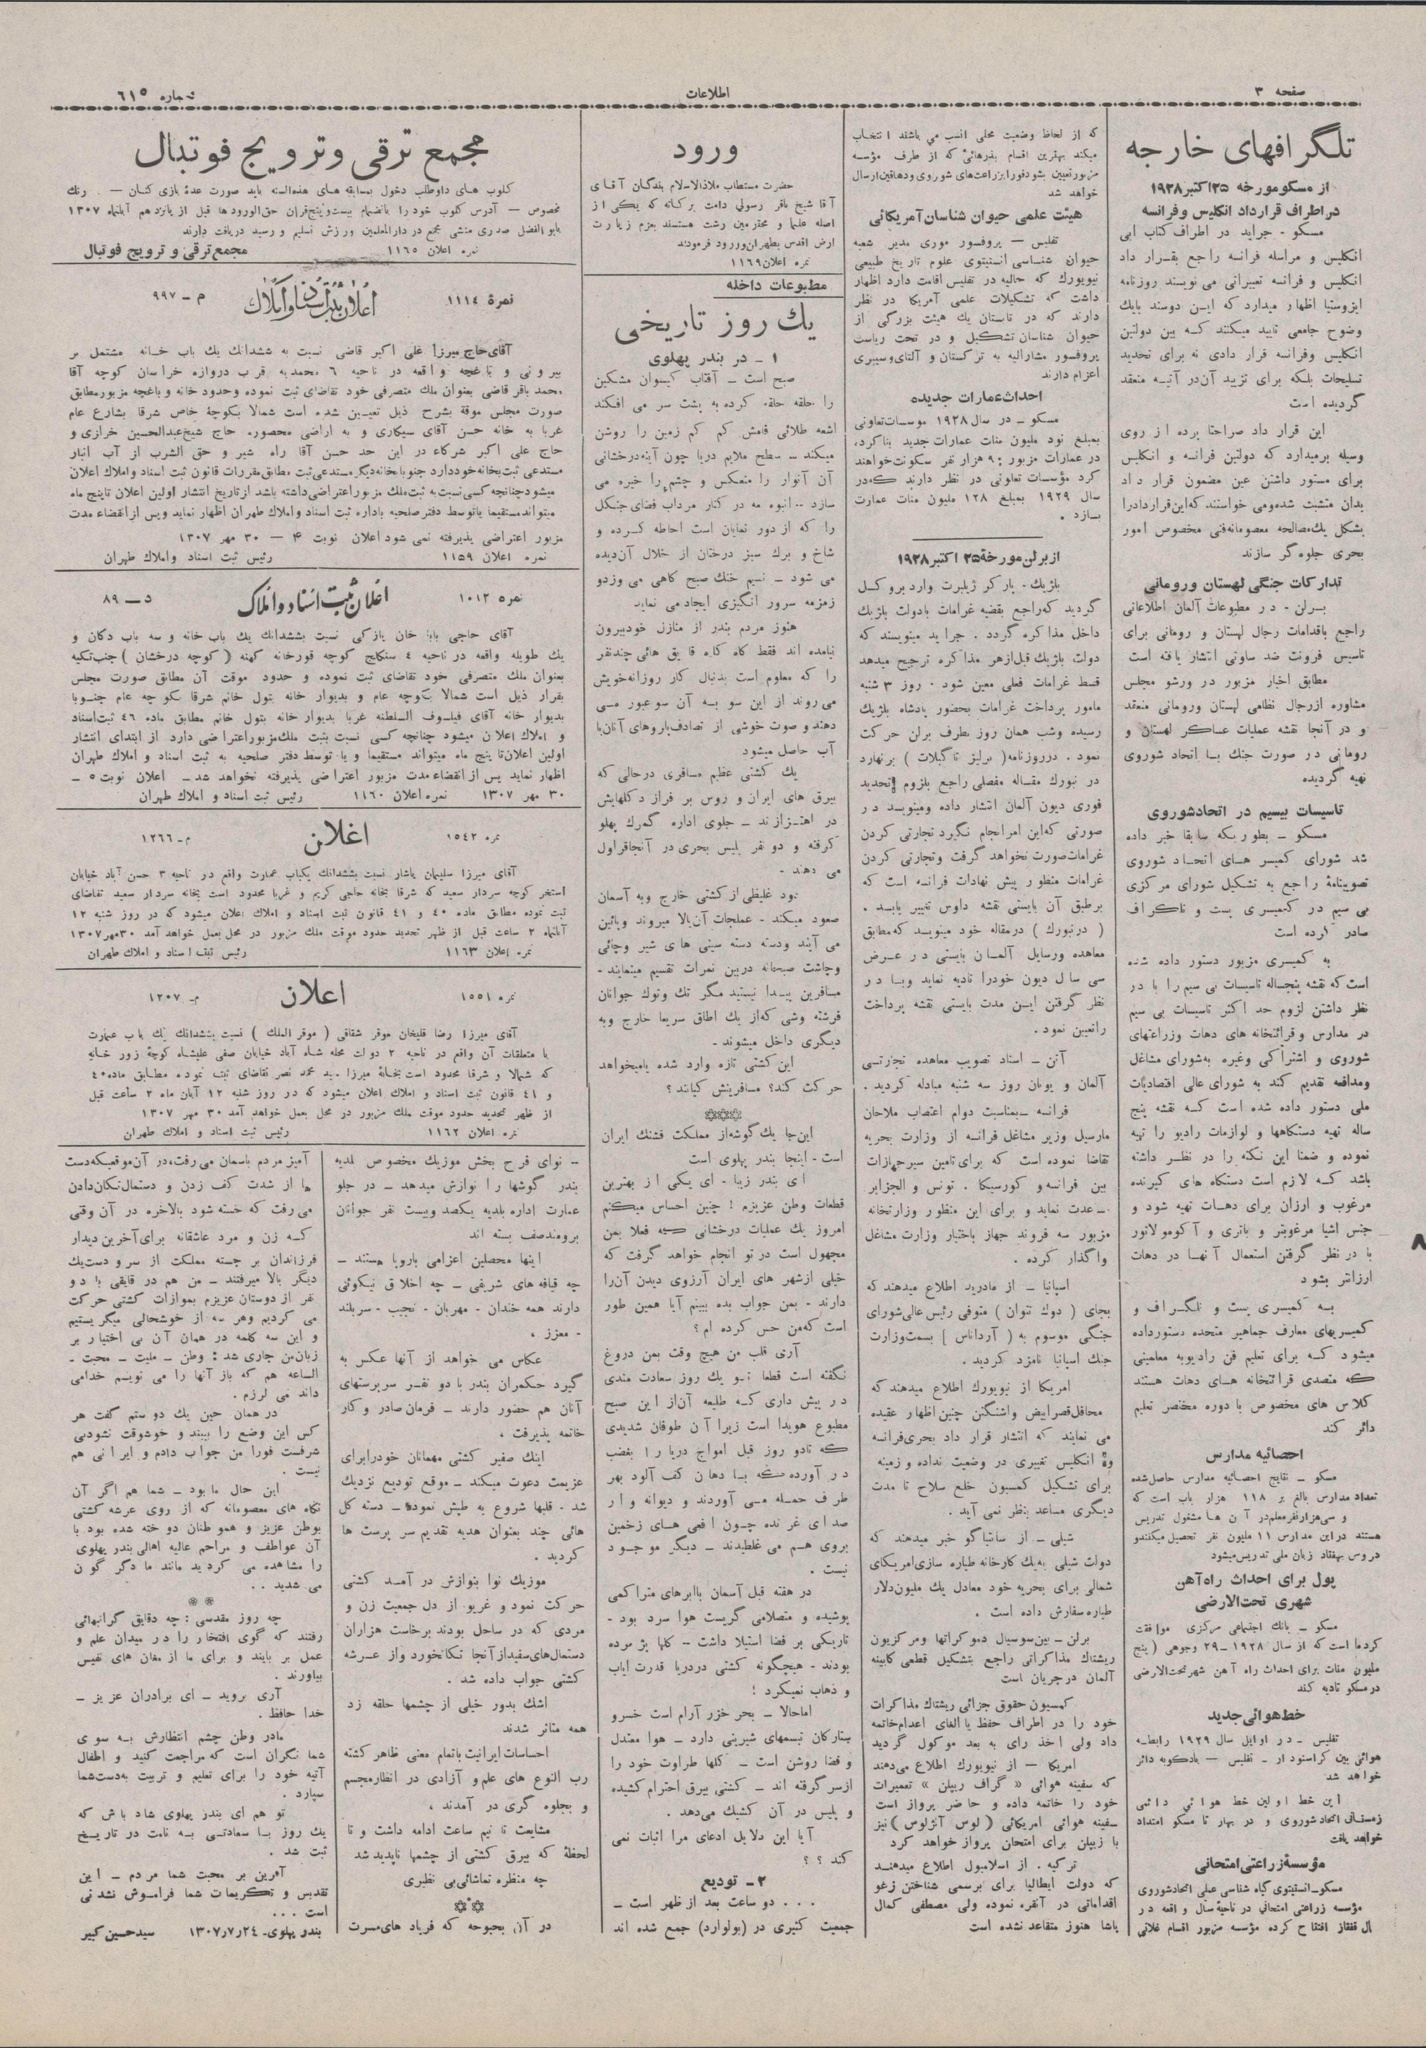 صفحه ۳
اطلاعات
شماره ٦١٥
تلگرافهای خارجه
از مسکو مورخه ۲۵ اکتبر ۱۹۲۸
در اطراف قرارداد انگلیس و فرانسه
مسکو - جراید در اطراف کتاب ابی
انگلیس و مراسله فرانسه راجع بقرار داد
انگلیس و فرانسه تعبیراتی می نویسند روزنامه
ایزوستیا اظهار میدارد که ایـن دوسند بایك
وضوح جامعی تایید میکنند کـه بین دولتین
انگلیس وفرانسه قرار دادی نه برای تحدید
تسلیحات بلکه برای تزیید آن در آتیـه منعقد
گردیده است
این قرار داد صراحتا پرده از روی
وسیله برمیدارد که دولتین فرانسه و انگلیس
برای مستور داشتن عین مضمون قرار داد
بدان متشبث شده ومی خواستند که این قرارداد را
بشکل یك مصالحه معصومانه فنی مخصوص امور
بحری جلوه گر سازند
تدارکات جنگی لهستان و رومانی
بـرلن - در مطبوعات آلمان اطلاعاتی
راجع باقدامات رجال لهستان و رومانی برای
تاسیس فرونت ضد ساوتی انتشار یافته است
مطابق اخبار مزبور در ورشو مجلس
مشاوره ازرجال نظامی لهستان ورومانی منعقد
و در آنجا نقشه عملیات عساکر لهستان و
رومانی در صورت جنك بـا اتحاد شوروی
تهیه گردیده
تاسیسات بیسیم در اتحادشوروی
مسکو - بطوریکه سابقا خبر داده
شد شورای کمیسر هـای اتحـاد شوروی
تصویبنامهٔ راجع به تشکیل شورای مرکزی
بی سیم در کمیسری پست و تلگراف
صادر کرده است
به کمیسری مزبور دستور داده شده
است که نقشه پنجساله تاسیسات بی سیم را با در
نظر داشتن لزوم حد اکثر تاسیسات بی سیم
در مدارس و قرائتخانه های دهات وزراعتهای
شوروی و اشتراکی وغیره به شورای مشاغل
ومدافعه تقدیم کند به شورای عالی اقتصادیات
ملی دستور داده شده است کـه نقشه پنج
ساله تهیه دستگاهها و لوازمات رادیو را تهیه
نموده و ضمنا این نکته را در نظـر داشته
باشد کـه لازم است دستگاه های گیرنده
مرغوب و ارزان برای دهـات تهیه شود و
جنس اشیا مرغوبتر و باتری و آکومولاتور
با در نظر گرفتن استعمال آنهـا در دهات
ارزانتر بشود
به کمیسری پست و تلگراف و
کمیسریهای معارف جماهیر متحده دستور داده
میشود کـه برای تعلیم فن رادیو به معلمینی
که متصدی قرائتخانه هـای دهات هستند
کلاس های مخصوص با دوره مختصر تعلیم
دائر کند
احصائیه مدارس
مسکو – نتایج احصائیه مدارس حاصل شده
تعداد مدارس بالغ بر ۱۱۸ هزار باب است که
و سی هزار نفر معلم در آن ها مشغول تدریس
هستند در این مدارس ۱۱ ملیون نفر تحصیل میکنند و
دروس بهفتاد زبان ملی تدریس میشود
پول برای احداث راه آهن
شهری تحت الارضی
مسکو – بانك اجتماعی مرکزی موافقت
کرده است که از سال ۱۹۲۸-۲۹ وجوهی ( پنج
ملیون منات برای احداث راه آهن شهر تحت الارضی
در مسکو تادیه کند
خط هوائی جدید
تفلیس - در اوایل سال ۱۹۲۹ رابطه
هوائی بین کراسنودار – تفلیس – بادکوبه دائر
خواهد شد
این خط اولین خط هوائی دائمی
زمستانی اتحاد شوروی و در بهار تا مسکو امتداد
خواهد یافت
مؤسسهٔ زراعتی امتحانی
مسکو – انستیتوی گیاه شناسی عملی اتحاد شوروی
مؤسسه زراعتی امتحانی در ناحیه سال و اقعه در
ال قفقاز افتتاح کرده مؤسسه مزبور اقسام غلاتی
که از لحاظ وضعیت محلی انسب می باشند انتخاب
میکند بهترین اقسام بذرهائی که از طرف مؤسسه
مزبور تعیین بشود فورا بزراعت های شوروی و دهاقین ارسال
خواهد شد
هیئت علمی حیوان شناسان آمریکائی
تفلیس – پروفسور موری مدیر شعبه
حیوان شناسی انستیتوی علوم تاریخ طبیعی
نیویورك که حالیه در تفلیس اقامت دارد اظهار
داشت که تشکیلات علمی آمریکا در نظر
دارند که در تابستان یك هیئت بزرگی از
حیوان شناسان تشکیل و در تحت ریاست
پروفسور مشارالیه به ترکستان و آلتای و سیبری
اعزام دارند
احداث عمارات جدیده
مسکو – در سال ۱۹۲۸ موسسات تعاونی
بمبلغ نود ملیون منات عمارات جدید بنا کرده
در عمارات مزبور ۹۰ هزار نفر سکونت خواهند
کرد مؤسسات تعاونی در نظر دارند که در
سال ۱۹۲۹ بمبلغ ۱۲۸ ملیون منات عمارت
بسازد .
از برلن مورخهٔ ۲۵ اکتبر ۱۹۲۸
بلژیك - پارکر ژیلبرت وارد بروکسل
گردید که راجع بقضیه غرامات با دولت بلژیك
داخل مذاکره گردد . جراید مینویسند که
دولت بلژیك قبل از هر مذاکره ترجیح میدهد
قسط غرامات فعلی معین شود . روز ۳ شنبه
مامور پرداخت غرامات بحضور پادشاه بلژیك
رسیده وشب همان روز بطرف برلن حرکت
نمود . در روزنامه ( برلینر تاگبلات ) برنهارد
در نبورك مقاله مفصلی راجع بلزوم تحدید
فوری دیون آلمان انتشار داده ومینویسد در
صورتی که این امر انجام نگیرد تجارتی کردن
غرامات صورت نخواهد گرفت وتجارتی کردن
غرامات منظور پیش نهادات فرانسه است که
برطبق آن بایستی نقشه داوس تغییر یابد .
( درنبورك ) درمقاله خود مینویسد که مطابق
معاهده ورسایل آلمـان بایستی در عـرض
سی سال دیون خود را تادیه نماید وبـا در
نظر گرفتن ایـن مدت بایستی نقشه پرداخت
را تعیین نمود .
آتن - اسناد تصویب معاهده تجارتـی
آلمان و یونان روز سه شنبه مبادله گردید .
فرانسه – بمناسبت دوام اعتصاب ملاحان
مارسیل وزیر مشاغل فرانسه از وزارت بحریه
تقاضا نموده است که برای تامین سیر جهازات
بین فرانسه و کورسیکا . تونس و الجزایر
مساعدت نماید و برای این منظور وزارتخانه
مزبور سه فروند جهاز باختیار وزارت مشاغل
واگذار کرده .
اسپانیا – از مادرید اطلاع میدهند که
بجای ( دوك تتوان ) متوفی رئیس عالی شورای
جنگی موسوم به ( آرداناس ) بسمت وزارت
جنك اسپانیا نامزد گردید .
امریکا از نیویورك اطلاع میدهند که
محافل قصر ابیض واشنگتن چنین اظهار عقیده
می نمایند که انتشار قرار داد بحری فرانسه
و انگلیس تغییری در وضعیت نداده و زمینه
برای تشکیل کمسیون خلع سلاح تا مدت
دیگری مساعد بنظر نمی آید .
شیلی – از سانتیاگو خبر میدهند که
دولت شیلی به یك کارخانه طیاره سازی امریکای
شمالی برای بحریه خود معادل یك ملیون دلار
طیاره سفارش داده است .
برلن – بین سوسیال دموکراتها ومرکزیون
ریشتاك مذاکراتی راجع بتشکیل قطعی کابینه
آلمان درجریان است
کمسیون حقوق جزائی ریشتاك مذاکرات
خود را در اطراف حفظ یا الغای اعدام خاتمه
داد ولی اخذ رای به بعد موکول گردید
امریکا – از نیویورك اطلاع می دهند
که سفینه هوائی « گراف زپلن » تعمیرات
خود را خاتمه داده و حاضر پرواز است
سفینه هوائی امریکائی ( لوس آنژلوس ) نیز
با زیپلن برای امتحان پرواز خواهد کرد
ترکیه . از اسلامبول اطلاع میدهند
که دولت ایطالیا برای برسمی شناختن زغو
اقداماتی در آنقره نموده ولی مصطفی کمال
پاشا هنوز متقاعد نشده است
ورود
حضرت مستطاب ملاذالاسلام بندگان آقای
آقا شیخ باقر رسولی دامت برکاته که یکی از
اجله علما و محترمین رشت هستند بعزم زیارت
ارض اقدس بطهران ورود فرمودند
نمره اعلان ۱۱٦۹
مطبوعات داخله
یك روز تاریخی
۱ - در بندر پهلوی
صبح است – آفتاب گیسوان مشکین
را حلقه حلقه کرده به پشت سر می افکند
اشعه طلائی فامش کم کم زمین را روشن
میکند – سطح ملایم دریا چون آینه درخشانی
آن آنوار را منعکس و چشم را خیره می
سازد – انبوه مه در کنار مرداب فضای جنگل
را که از دور نمایان است احاطه کـرده و
شاخ و برك سبز درختان از خلال آن دیده
می شود – نسیم خنك صبح گاهی می وزد و
زمزمه سرور انگیزی ایجاد می نماید
هنوز مردم بندر از منازل خود بیرون
نیامده اند فقط گاه گاه قایق هائی چند نفر
را که معلوم است بدنبال کار روزانه خویش
می روند از این سو به آن سو عبور می
دهند و صوت خوشی از تصادف پاروهای آنان با
آب حاصل میشود
یك کشتی عظیم مسافری درحالی که
بیرق های ایران و روس بر فراز دکلهایش
در اهتزازند – جلوی اداره گمرك پهلو
گرفته و دو نفر پلیس بحری در آنجا قراول
می دهند .
دود غلیظی از کشتی خارج وبه آسمان
صعود میکند - عملجات آن بالا میروند و پائین
می آیند و دسته دسته سینی های شیر و چائی
وچاشت صبحانه دربین نمرات تقسیم مینمایند -
مسافرین پیـدا نیستند مگر تك وتوك جوانان
فرشته وشی که از یك اطاق سریعا خارج وبه
دیگری داخل میشوند .
این کشتی تازه وارد شده یا میخواهد
حرکت کند؟ مسافرینش کیانند ؟
این جا یك گوشه از مملکت قشنك ایران
است - اینجا بندر پهلوی است
ای بندر زیبا – ای یکی از بهترین
قطعات وطن عزیزم ! چنین احساس میکنم
امروز یك عملیات درخشانی که فعلا بمن
مجهول است در تو انجام خواهد گرفت که
خیلی ازشهر های ایران آرزوی دیدن آن را
دارند – بمن جواب بده ببینم آیا همین طور
است که من حس کرده ام؟
آری قلب من هیچ وقت بمن دروغ
نگفته است قطعا تو یك روز سعادت مندی
در پیش داری کـه طلیعه آن از این صبح
مطبوع هویدا است زیرا آن طوفان شدیدی
که تا دو روز قبل امواج دریا را بغضب
در آورده که بـا دهان کف آلود بهر
طرف حمله می آوردند و دیوانه وار
صدای غرنده چون افعی های زخمین
بروی هم می غلطیدند – دیگر موجود
نیست .
در هفته قبل آسمان با ابرهای متراکمی
پوشیده و متصلا می گریست هوا سرد بود –
تاریکی بر فضا استیلا داشت – گلها پژمرده
بودند - هیچگونه کشتی دردریا قدرت ایاب
و ذهاب نمیکرد !
اما حالا – بحر خزر آرام است خسرو
ستارگان تبسمهای شیرینی دارد – هوا معتدل
و فضا روشن است – گلها طراوت خود را
از سر گرفته اند – کشتی بیرق احترام کشیده
و پلیس در آن کشیك می دهد .
آیا این دلایل ادعای مرا اثبات نمی
کند ؟ ؟
۲ - تودیع
. . . دو ساعت بعد از ظهر است –
جمعیت کثیری در (بولوارد) جمع شده اند
مجمع ترقی و ترویج فوتبال
کلوب های داوطلب دخول بمسابقه های هذه السنه باید صورت عدهٔ بازی کنان – رنك
مخصوص – آدرس کلوب خود را بانضمام بیست و پنج قران حق الورود ها قبل از پانزدهم آبانماه ۱۳۰۷
بابوالفضل صدری منشی مجمع در دارالمعلمین ورزش تسلیم و رسید دریافت دارند
نمره اعلان ۱۱٦٥
مجمع ترقی و ترویج فوتبال
نمرهٔ ۱۱۱٤
اعلان ثبت اسناد و املاك
م – ۹۹۷
آقای حاج میرزا علی اکبر قاضی نسبت به ششدانك یك باب خانه مشتمل بر
بیرونی و باغچه واقعه در ناحیه ٦ محمدیه قرب دروازه خراسان کوچه آقا
محمد باقر قاضی بعنوان ملك متصرفی خود تقاضای ثبت نموده وحدود خانه و باغچه مزبور مطابق
صورت مجلس موقة بشرح ذیل تعیین شده است شمالا بکوچهٔ خاص شرقا بشارع عام
غربا به خانه حسن آقای سیگاری و به اراضی محصوره حاج شیخ عبدالحسین خرازی و
حاج علی اکبر شرکاء در این حد حسن آقا راه شیر و حق الشرب از آب انبار
مستدعی ثبت بخانه خود دارد جنوبا بخانه دیگر مستدعی ثبت مطابق مقررات قانون ثبت اسناد واملاك اعلان
میشود چنانچه کسی نسبت به ثبت ملك مزبور اعتراضی داشته باشد از تاریخ انتشار اولین اعلان تا پنج ماه
میتواند مستقیما یا توسط دفتر صلحیه باداره ثبت اسناد و املاك طهران اظهار نماید و پس از انقضاء مدت
مزبور اعتراضی پذیرفته نمی شود اعلان نوبت ۴ – ۳۰ مهر ۱۳۰۷
نمره اعلان ۱۱۵۹
رئیس ثبت اسناد و املاك طهران
نمره ۱۰۱۲
اعلان ثبت اسناد و املاك
د – ۸۹
آقای حاجی بابا خان یازکی نسبت بششدانك یك باب خانه و سه باب دکان و
یك طویله واقعه در ناحیه ٤ سنگلج کوچه قورخانه کهنه ( کوچه درخشان ) جنب تکیه
بعنوان ملك متصرفی خود تقاضای ثبت نموده و حدود موقت آن مطابق صورت مجلس
بقرار ذیل است شمالا بکوچه عام و بدیوار خانه بتول خانم شرقا بکوچه عام جنوبا
بدیوار خانه آقای فیلسوف السلطنه غربا بدیوار خانه بتول خانم مطابق ماده ٤٦ ثبت اسناد
و املاك اعلان میشود چنانچه کسی نسبت بثبت ملك مزبور اعتراضی دارد از ابتدای انتشار
اولین اعلان تا پنج ماه میتواند مستقیما و یا توسط دفتر صلحیه به ثبت اسناد و املاك طهران
اظهار نماید پس از انقضاء مدت مزبور اعتراضی پذیرفته نخواهد شد – اعلان نوبت ۵ –
۳۰ مهر ۱۳۰۷ نمره اعلان ۱۱٦۰ رئیس ثبت اسناد و املاك طهران
نمره ۱۵٤۲
اعلان
م – ۱۲٦٦
آقای میرزا سلیمان یاشار نسبت بششدانك یکباب عمارت واقع در ناحیه ۳ حسن آباد خیابان
استخر کوچه سردار سعید که شرقا بخانه حاجی کریم و غربا محدود است بخانه سردار سعید تقاضای
ثبت نموده مطابق ماده ٤۰ و ٤۱ قانون ثبت اسناد و املاك اعلان میشود که در روز شنبه ۱۲
آبانماه ۲ ساعت قبل از ظهر تحدید حدود موقت ملك مزبور در محل بعمل خواهد آمد ۳۰ مهر ۱۳۰۷
نمره اعلان ۱۱٦۳
رئیس ثبت اسناد و املاك طهران
نمره ۱۵۵۱
اعلان
م – ۱۲۰۷
آقای میرزا رضا قلیخان موقر شقاقی ( موقر الملك ) نسبت بششدانك یك باب عمارت
با متعلقات آن واقع در ناحیه ۲ دولت محله شاه آباد خیابان صفی علیشاه کوچهٔ زور خانه
که شمالا و شرقا محدود است بخانهٔ میرزا سید محمد نصر تقاضای ثبت نموده مطابق ماده ٤۰
و ٤۱ قانون ثبت اسناد و املاك اعلان میشود که در روز شنبه ۱۲ آبان ماه ۲ ساعت قبل
از ظهر تحدید حدود موقت ملك مزبور در محل بعمل خواهد آمد ۳۰ مهر ۱۳۰۷
نمره اعلان ۱۱٦۲
رئیس ثبت اسناد و املاك طهران
– نوای فرح بخش موزیك مخصوص بلدیه
بندر گوشها را نوازش میدهد – در جلو
عمارت اداره بلدیه یکصد وبیست نفر جوانان
برومند صف بسته اند
اینها محصلین اعزامی باروپا هستند –
چه قیافه های شریفی – چه اخلاق نیکوئی
دارند همه خندان - مهربان - نجیب - سربلند
- معزز .
عکاس می خواهد از آنها عکس به
گیرد حکمران بندر با دو نفـر سرپرستهای
آنان هم حضور دارند – فرمان صادر و کار
خاتمه پذیرفت .
اینك صفیر کشتی مهمانان خود را برای
عزیمت دعوت میکند – موقع تودیع نزدیك
شد - قلبها شروع به طپش نموده - دسته گل
هائی چند بعنوان هدیه تقدیم سر پرست ها
گردید .
موزیك نوا بنوازش در آمد کشتی
حرکت نمود و غریو از دل جمعیت زن و
مردی که در ساحل بودند برخاست هزاران
دستمال های سفید از آنجا تکانخورد و از عرشه
کشتی جواب داده شد .
اشك بدور خیلی از چشمها حلقه زد
همه متاثر شدند
احساسات ایرانیت باتمام معنی ظاهر گشته
رب النوع های علم و آزادی در انظار مجسم
و بجلوه گری در آمدند ،
مشایعت تا نیم ساعت ادامه داشت و تا
لحظهٔ که بیرق کشتی از چشمها ناپدید شد
چه منظره تماشائی بی نظیری
در آن بحبوحه که فریاد های مسرت
آمیز مردم باسمان می رفت، در آن موقعیکه دست
ها از شدت کف زدن و دستمال تکان دادن
می رفت که خسته شود بالاخره در آن وقتی
کـه زن و مرد عاشقانه برای آخرین دیدار
فرزندان بر جسته مملکت از سر و دست یك
دیگر بالا میرفتند – من هم در قایقی با دو
نفر از دوستان عزیزم بموازات کشتی حرکت
می کردیم وهر سه از خوشحالی میگریستیم
و این سه کلمه در همان آن بی اختیار بر
زبان من جاری شد : وطن - ملیت - محبت -
الساعه هم که باز آنها را می نویسم خدامی
داند می لرزم .
در همان حین یك دوستم گفت هر
کس این وضع را ببیند و خوشوقت نشود بی
شرفست فورا من جواب دادم و ایرانی هم
نیست .
این حال ما بود – شما هم اگر آن
نگاه های معصومانه که از روی عرشه کشتی
بوطن عزیز و هموطنان دوخته شده بود با
آن عواطف و مراحم عالیه اهالی بندر پهلوی
را مشاهده می کردید مانند ما دگرگون
می شدید . .
چه روز مقدسی : چه دقایق گرانبهائی
رفتند که گوی افتخار را در میدان علم و
عمل بر بایند و برای ما ارمغان های نفیس
بیاورند .
آری بروید – ای برادران عزیز –
خدا حافظ .
مادر وطن چشم انتظارش به سوی
شما نگران است که مراجعت کنید و اطفال
آتیه خود را برای تعلیم و تربیت به دست شما
سپارد .
تو هم ای بندر پهلوی شاد باش که
یك روز بـا سعادتـی بـه نامت در تاریـخ
ثبت شد .
آفرین بر محبت شما مردم – این
تقدیس و تکریمات شما فراموش نشدنی
است ...
بندر پهلوی- ۲٤ ر ۷ ر ۱۳۰۷ سید حسین کبیر